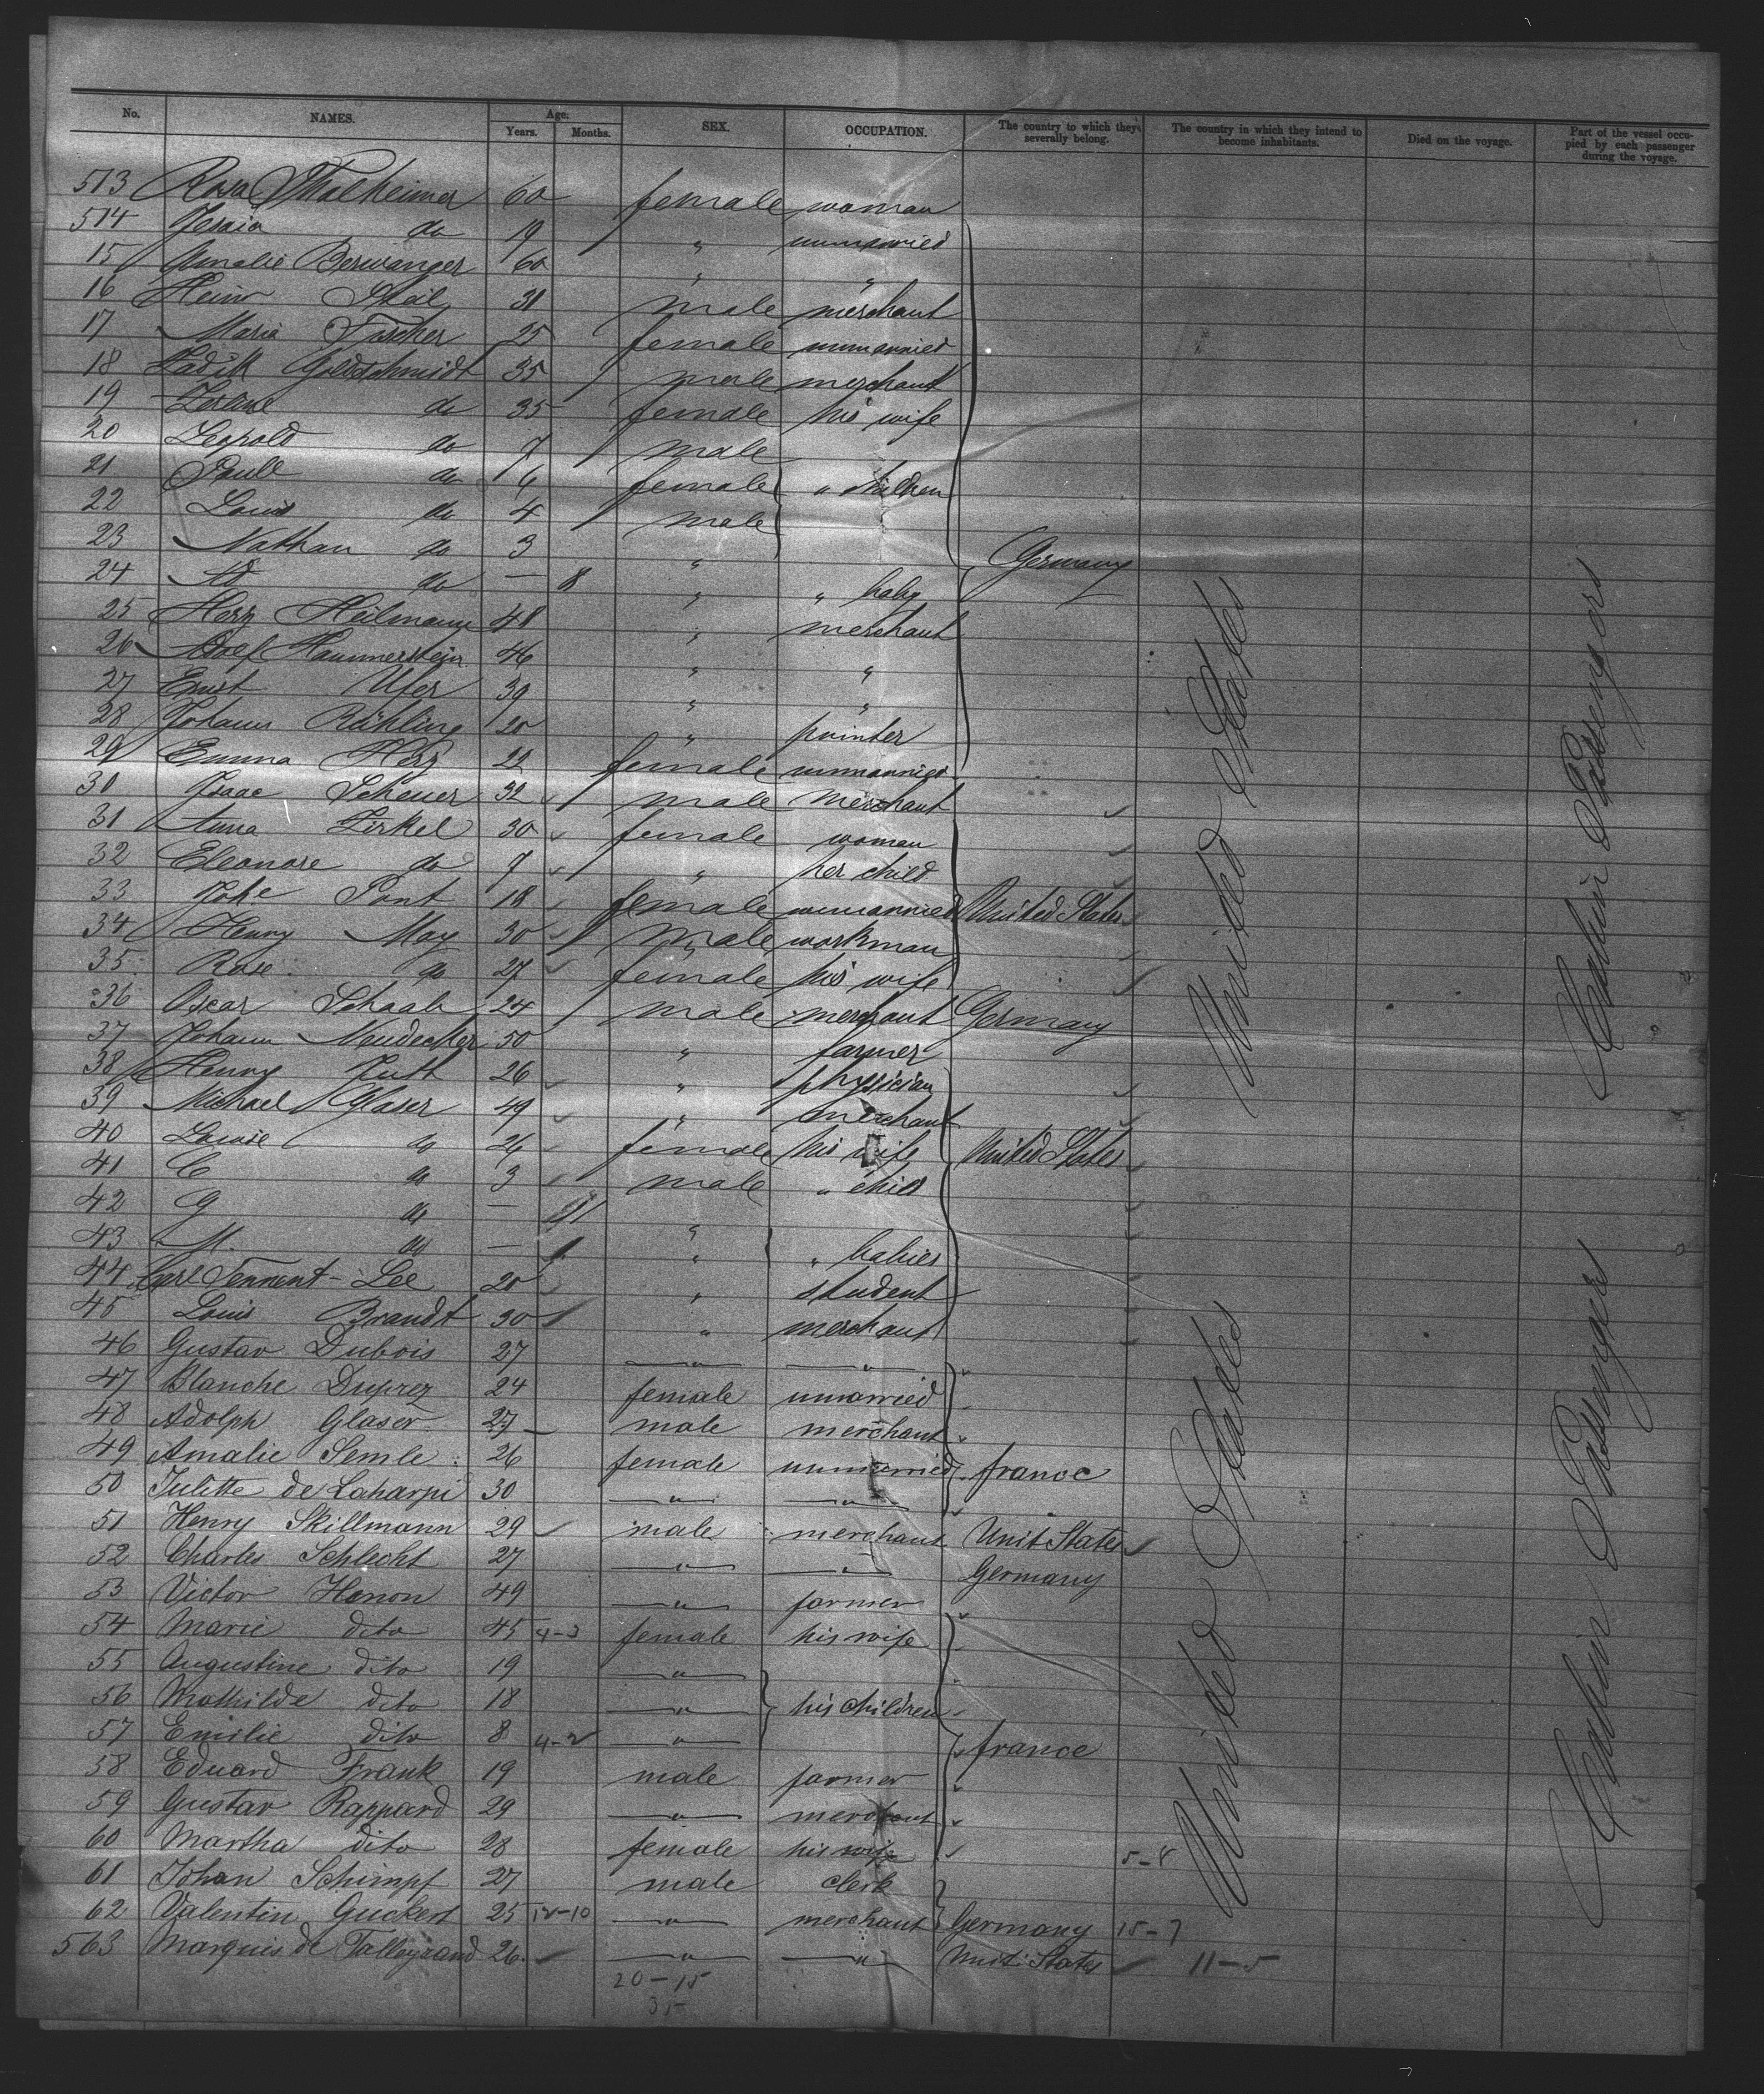 No. NAMES. Age. Years. Months. SEX. OCCUPATION. The country to which they severally belong. The country in which they intend to become inhabitants. Died on the voyage. Part of the vessel occupied by each passenger during the voyage.
513 Rosa Thalheimer 60 female woman
514 do 19 " unmarried
15 Amalie Berwanger 60 " "
16 Heinr 31 male merchant
17 Maria Fischer 25 female unmarried
18 Goldschmidt 35 male merchant
19 do 35 female his wife
20 Leopold do 7 male
21 Paull do 6 female " children
22 Louis do 4 male
23 Nathan do 3 " Germany
24 do — 8 " " baby
25 Herz Heilmann 48 " merchant
26 Adolf Hammerstein 46 " "
27 Ernst Ufer 39 " "
28 Johann Rühling 20 " painter
29 Emma Herz 22 female unmarried
30 Isaac Scheuer 32 male merchant
31 Anna Zirkel 30 female woman
32 Eleonore do 7 " her child
33 Pont 18 female unmarried United States
34 Henry May 30 male workman
35 Rose do 27 female his wife
36 Oscar Schaab 24 male merchant Germany
37 Johann Neudecker 50 " farmer
38 Henry 26 " physician
39 Michael Glaser 49 " merchant
40 Louise do 26 female his wife United States
41 C do 3 male " child
42 G do — 11 "
43 M. do — 1 " " babies
44 Carl Tennent-Lee 20 " student
45 Louis Brandt 30 " merchant
46 Gustav Dubois 27 " "
47 Blanche Duprez 24 female unmarried
48 Adolph Glaser 27 male merchant
49 Amalie Semle 26 female unmarried france
50 Julitte de Laharpi 30 " "
51 Henry Skillmann 29 male merchant Unit States
52 Charles Schlecht 27 " " Germany
53 Victor Henon 49 " farmer
54 Marie dito 45 4-3 female his wife
55 Augustine dito 19 "
56 Mathilde dito 18 " his children
57 Emilie dito 8 4-2 " france
58 Eduard Frank 19 male farmer
59 Gustav Rappard 29 " merchant
60 Martha dito 28 female his wife 5-8
61 Johan Schimpf 27 male clerk
62 Valentin Guckert 25 12-10 " merchant Germany 15-7
563 Marquis de Talleyrand 26 " " Unit: States 11-5
20-15
35
United States
United States
Cabin Passengers
Cabin Passengers